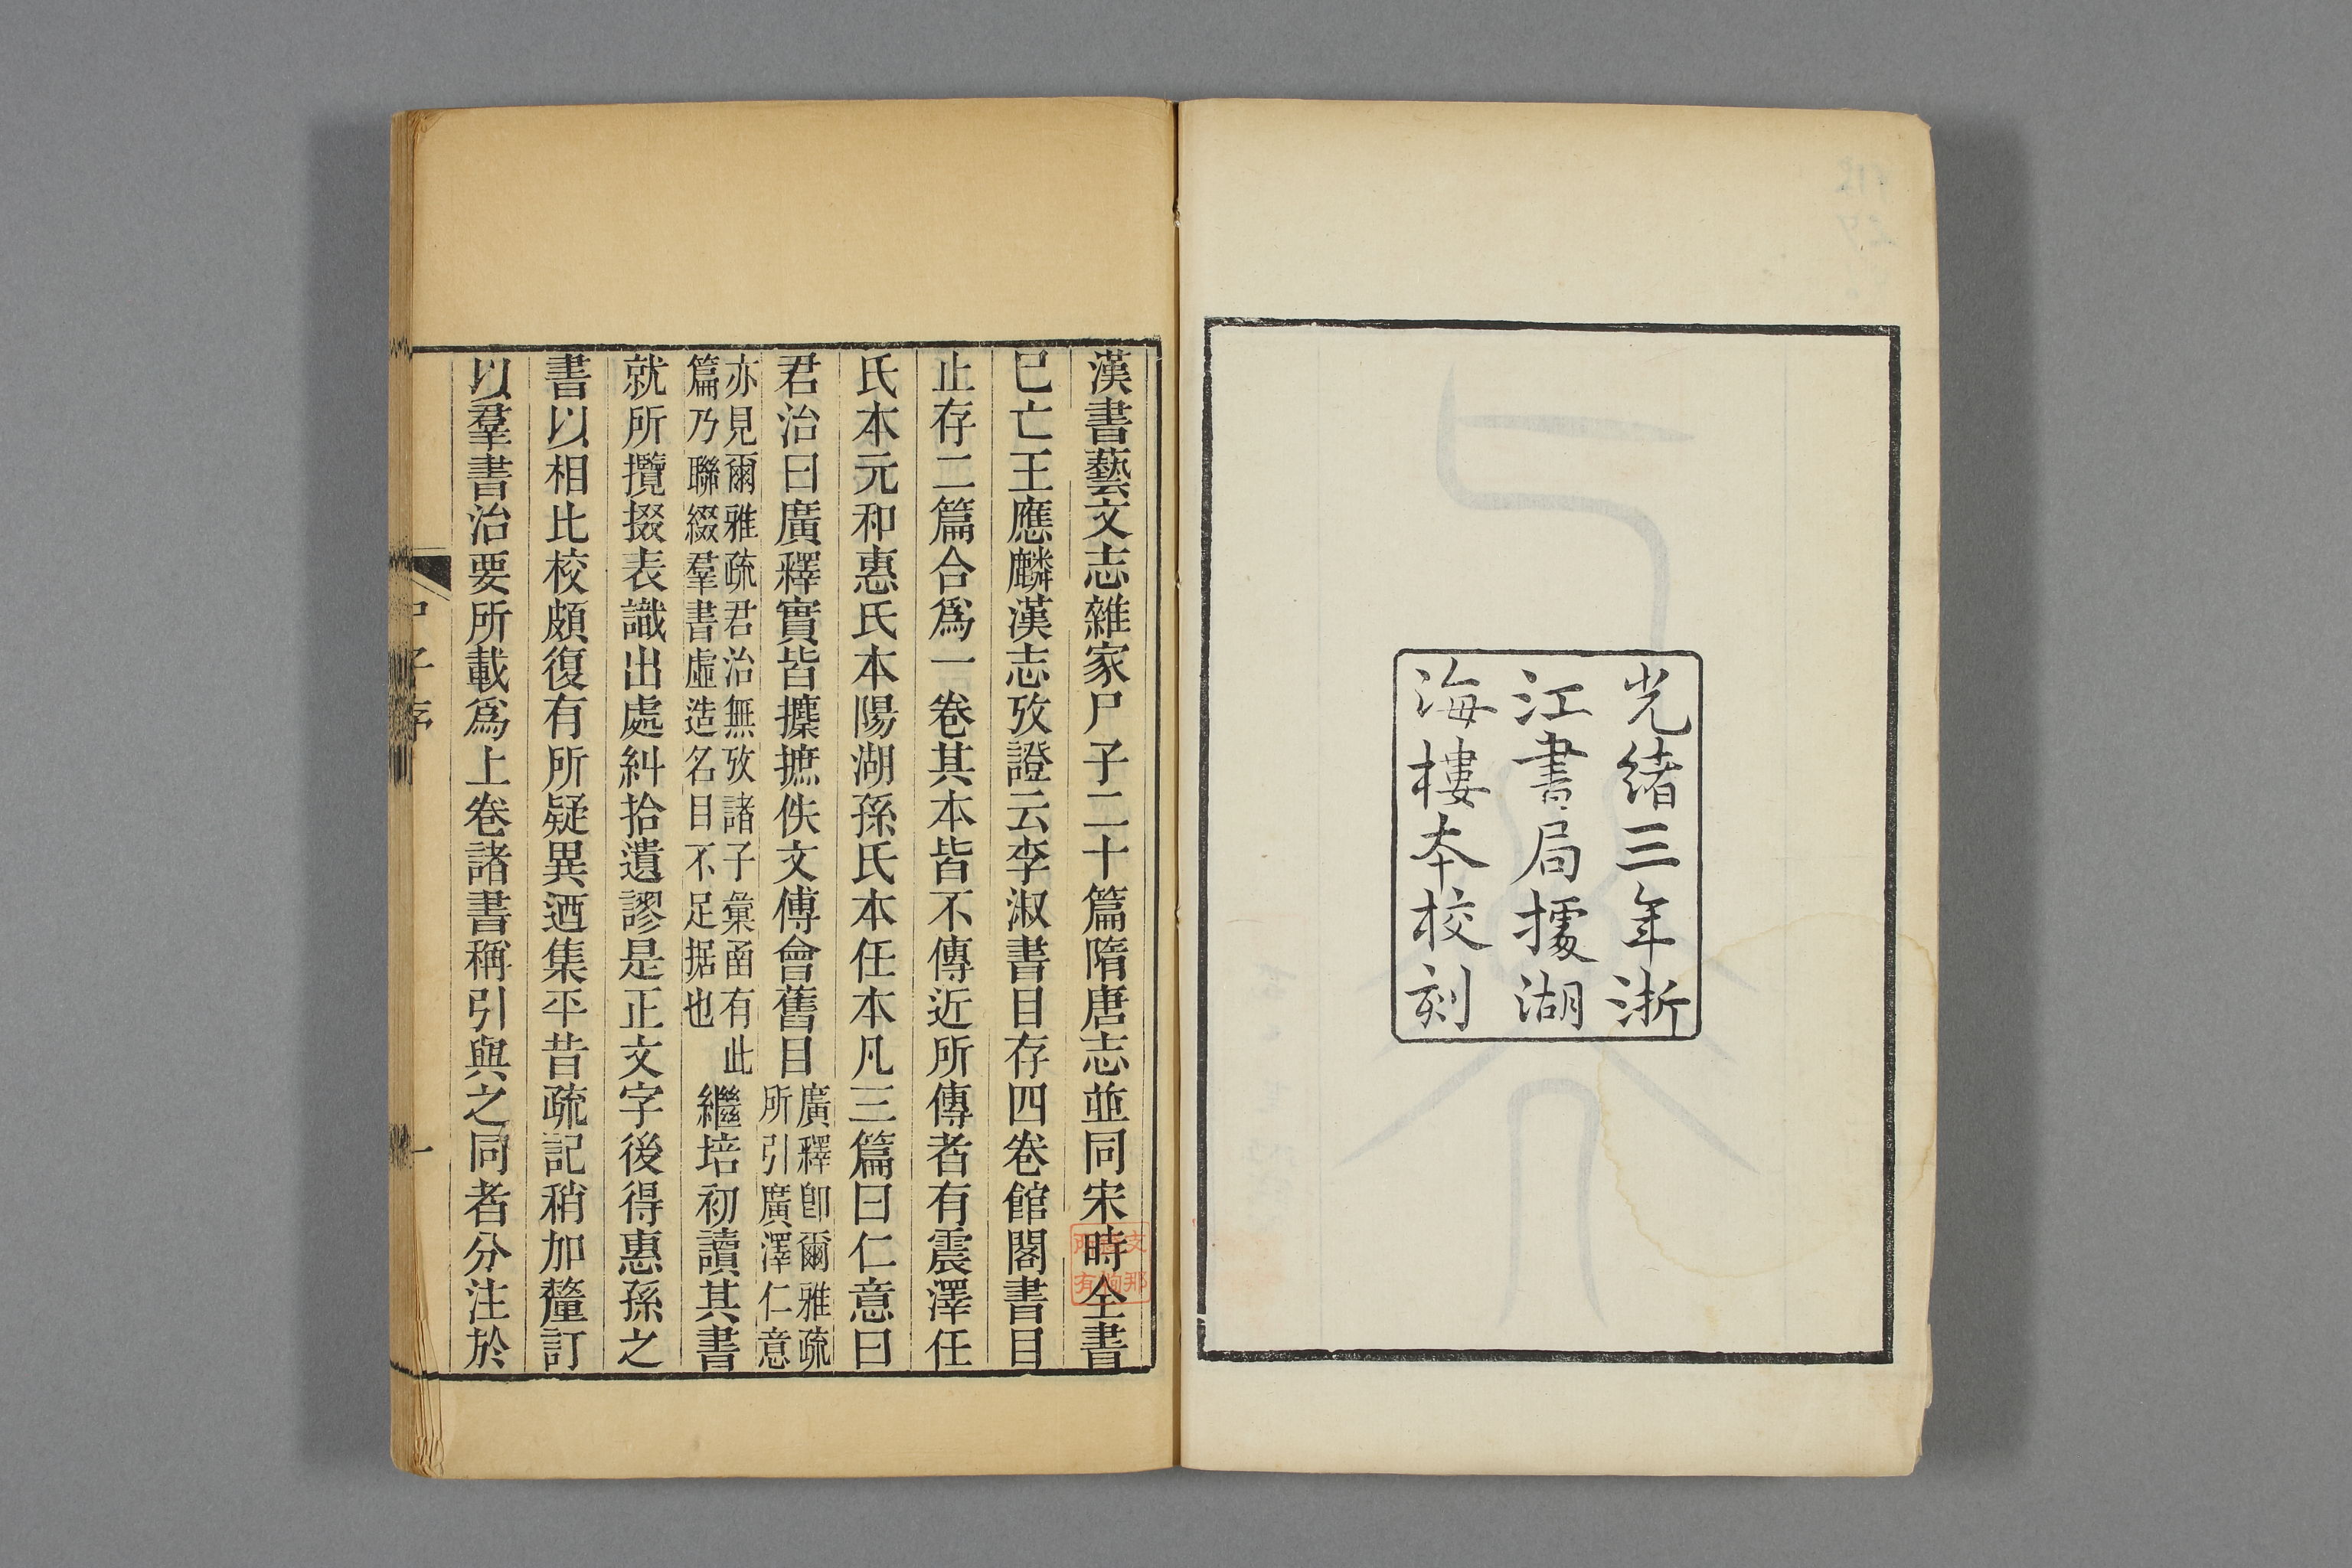 光緒三年浙
江書局據湖
海樓本校刻
漢書藝文志雜家尸子二十篇隋唐志並同宋時全書
巳亡王應麟漢志攷證云李淑書目存四卷館閣書目
止存二篇合爲一卷其本皆不傳近所傳者有震澤任
氏本元和惠氏本陽湖孫氏本任本凡三篇曰仁意曰
君治曰廣釋實皆攗摭佚文傅會舊目
廣釋卽爾雅疏
所引廣澤仁意
亦見爾雅疏君治無攷諸子彙函有此
篇乃聯綴羣書虛造名目不足据也
繼培初讀其書
就所攬掇表識出處糾拾遺謬是正文字後得惠孫之
書以相比校頗復有所疑異迺集平昔疏記稍加釐訂
以羣書治要所載爲上卷諸書稱引與之同者分注於
尸子序
一